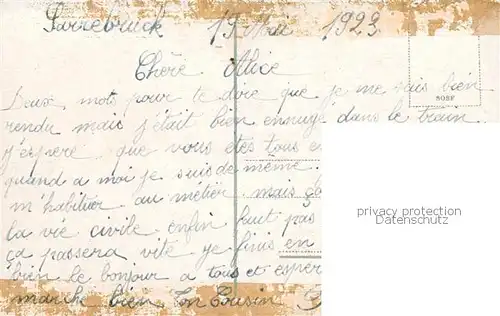 Sarrebruck 19 Mai 1923
Chère Alice
Deux mots pour te dire que je me suis bien
rendu mais j'était bien ennuyé dans le train.
j'espère que vous êtes tous en
quand a moi je suis de même.
m'habituer au métier mais ça
la vie civile enfin faut pas
ça passera vite je finis en
bien le bonjour a tous et espèr
marche bien. Ton Cousin
NOBF
privacy protection
www.oldthing.de